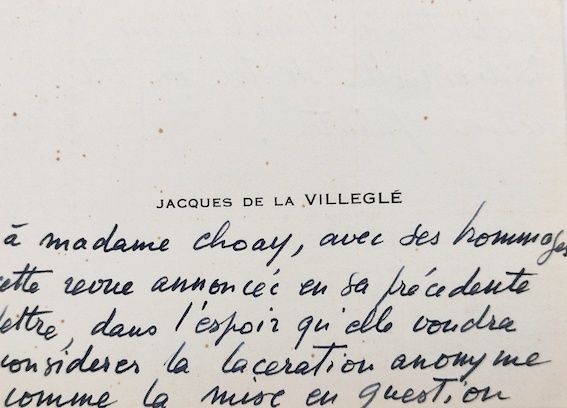 JACQUES DE LA VILLEGLÉ
à madame choay, avec ses hommages
cette revue annoncée en sa précédente
lettre, dans l'espoir qu'elle voudra
considerer la laceration anonyme
comme la mise en question